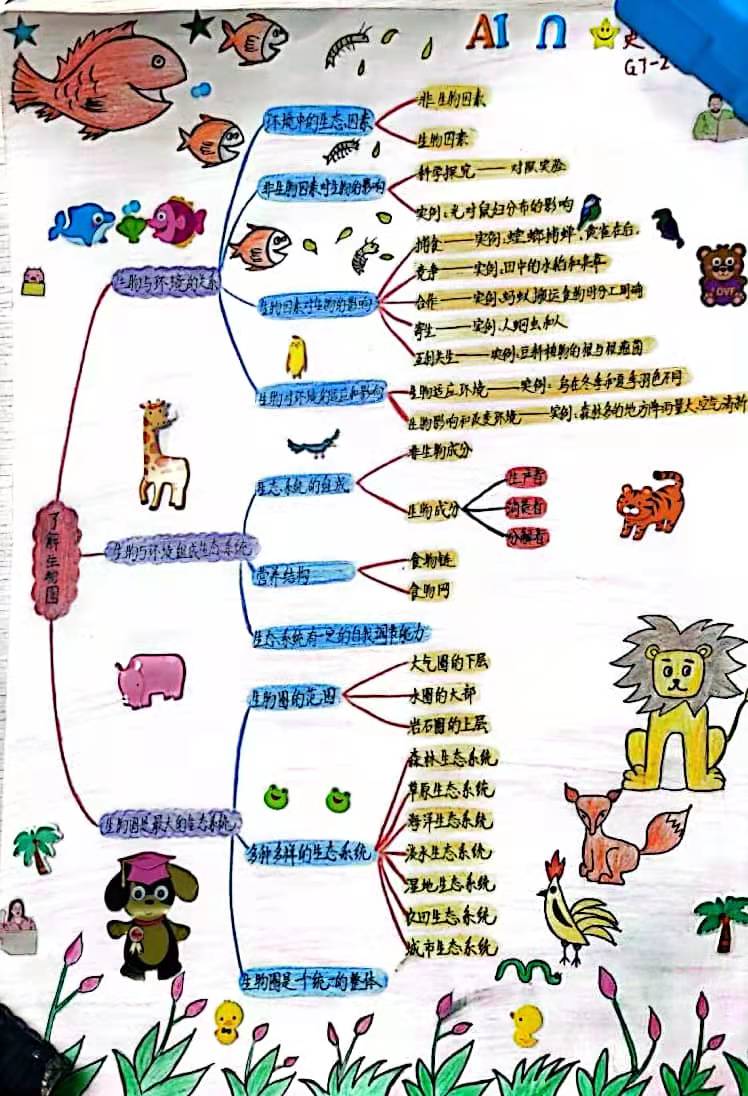 AI
G7-2
环境中的生态因素
非生物因素
生物因素
非生物因素对生物的影响
科学探究——对照实验
实例:光对鼠妇分布的影响
生物与环境的关系
生物因素对生物的影响
捕食——实例:螳螂捕蝉,黄雀在后.
竞争——实例:田中的水稻和杂草
合作——实例:蚂蚁搬运食物时分工明确
寄生——实例:人蛔虫和人
互利共生——实例:豆科植物的根与根瘤菌
生物对环境的适应和影响
生物适应环境——实例: 鸟在冬季和夏季羽色不同
生物影响和改变环境——实例:森林多的地方降雨量大,空气清新
了解生物圈
生物与环境组成生态系统
生态系统的组成
非生物成分
生物成分
生产者
消费者
分解者
营养结构
食物链
食物网
生态系统有一定的自我调节能力
生物圈是最大的生态系统
生物圈的范围
大气圈的下层
水圈的大部
岩石圈的上层
多种多样的生态系统
森林生态系统
草原生态系统
海洋生态系统
淡水生态系统
湿地生态系统
农田生态系统
城市生态系统
生物圈是一个统一的整体